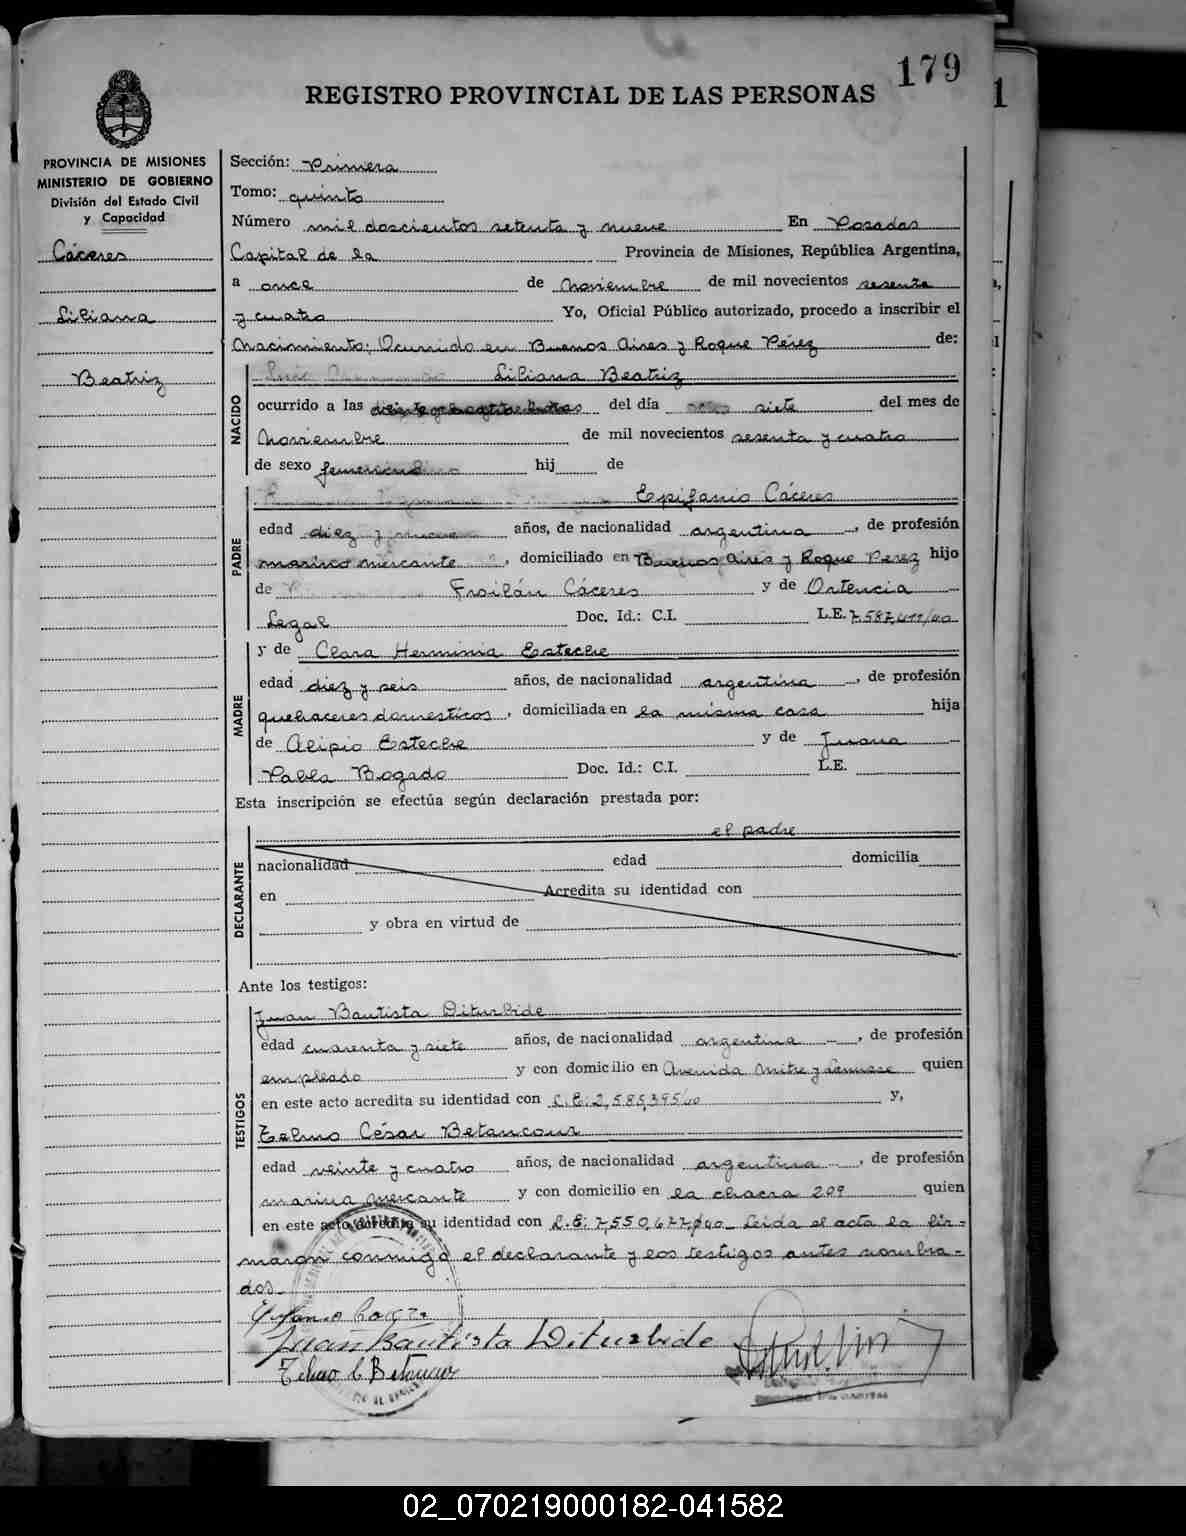 179
REGISTRO PROVINCIAL DE LAS PERSONAS
PROVINCIA DE MISIONES
MINISTERIO DE GOBIERNO
División del Estado Civil
y Capacidad
Cáceres
Liliana
Beatriz
Sección: Primera
Tomo: quinto
Número mil doscientos setenta y nueve En Posadas
Capital de la Provincia de Misiones, República Argentina,
a once de Noviembre de mil novecientos sesenta
y cuatro Yo, Oficial Público autorizado, procedo a inscribir el
Nacimiento: Ocurrido en Buenos Aires y Roque Pérez de:
NACIDO
Liliana Beatriz
ocurrido a las del día siete del mes de
Noviembre de mil novecientos sesenta y cuatro
de sexo femenino hij de
PADRE
Epifanio Cáceres
edad diez y nueve años, de nacionalidad argentina, de profesión
marino mercante, domiciliado en Buenos Aires y Roque Perez hijo
de Froilán Cáceres y de Ortencia
Legal Doc. Id.: C.I. L.E. 7.587.411/40
MADRE
y de Clara Herminia Esteche
edad diez y seis años, de nacionalidad argentina, de profesión
quehaceres domesticos, domiciliada en la misma casa hija
de Alipio Esteche y de Juana
Pabla Bogado Doc. Id.: C.I. L.E.
Esta inscripción se efectúa según declaración prestada por:
DECLARANTE
el padre
nacionalidad edad domicilia
en Acredita su identidad con
y obra en virtud de
Ante los testigos:
TESTIGOS
Juan Bautista Diturbide
edad cuarenta y siete años, de nacionalidad argentina, de profesión
empleado y con domicilio en Avenida Mitre y quien
en este acto acredita su identidad con L.E: y,
Telmo César Betancour
edad veinte y cuatro años, de nacionalidad argentina, de profesión
marina mercante y con domicilio en la chacra 209 quien
en este acto acredita su identidad con L.E: 7,550,677, Leida el acta la fir-
maron conmigo el declarante y los testigos antes nombra-
dos
Juan Bautista Diturbide
Telmo C Betancur
02_070219000182-041582